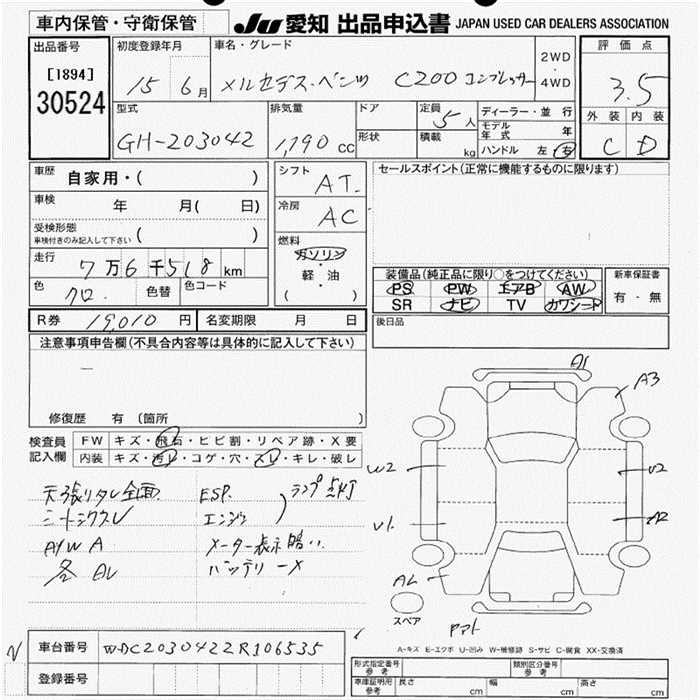 車内保管・守衛保管
JU 愛知 出品申込書 JAPAN USED CAR DEALERS ASSOCIATION
出品番号
[1894]
30524
初度登録年月
15 6月
車名・グレード
メルセデス・ベンツ C200 コンプレッサー
2WD
・
4WD
評価点
3.5
外装 内装
C D
型式
GH-203042
排気量
1,790 CC
ドア
形状
定員
5人
積載
kg
ディーラー・並行
モデル年式 年
ハンドル 左 右
車歴
自家用・( )
車検
年 月( 日)
受検形態
車検付きのみ記入して下さい ( )
走行
7万6千518 km
色
クロ
色替
色コード
シフト
AT
冷房
AC
燃料
ガソリン
・
軽・油
( )
セールスポイント(正常に機能するものに限ります)
装備品(純正品に限り○をつけてください)
PS PW エアB AW
SR ナビ TV カワシート
新車保証書
有・無
後日品
R券 19,010 円
名変期限 月 日
注意事項申告欄(不具合内容等は具体的に記入して下さい)
修復歴 有 (箇所 )
検査員
記入欄
FW キズ・飛石・ヒビ割・リペア跡・X要
内装 キズ・汚レ・コゲ・穴・スレ・キレ・破レ
天張リタレ全面
シートシワスレ
A/W A
各 AL
ESP.
エンジン
ランプ点灯
メーター表示暗い
バッテリーX
A1
A3
W2
U2
V1
A2
AL
スペア
A-キズ E-エクボ U-凹み W-補修跡 S-サビ C-腐食 XX-交換済
車台番号
WDC2030422R106535
登録番号
形式指定番号
参考
類別区分番号
参考
車庫証明用
参考
長さ cm
幅 cm
高さ cm